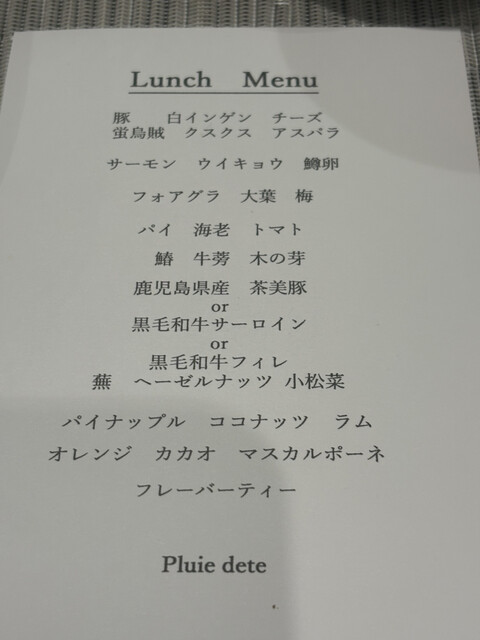 Lunch Menu
豚 白インゲン チーズ
蛍烏賊 クスクス アスパラ
サーモン ウイキョウ 鱒卵
フォアグラ 大葉 梅
パイ 海老 トマト
鰆 牛蒡 木の芽
鹿児島県産 茶美豚
or
黒毛和牛サーロイン
or
黒毛和牛フィレ
蕪 ヘーゼルナッツ 小松菜
パイナップル ココナッツ ラム
オレンジ カカオ マスカルポーネ
フレーバーティー
Pluie dete